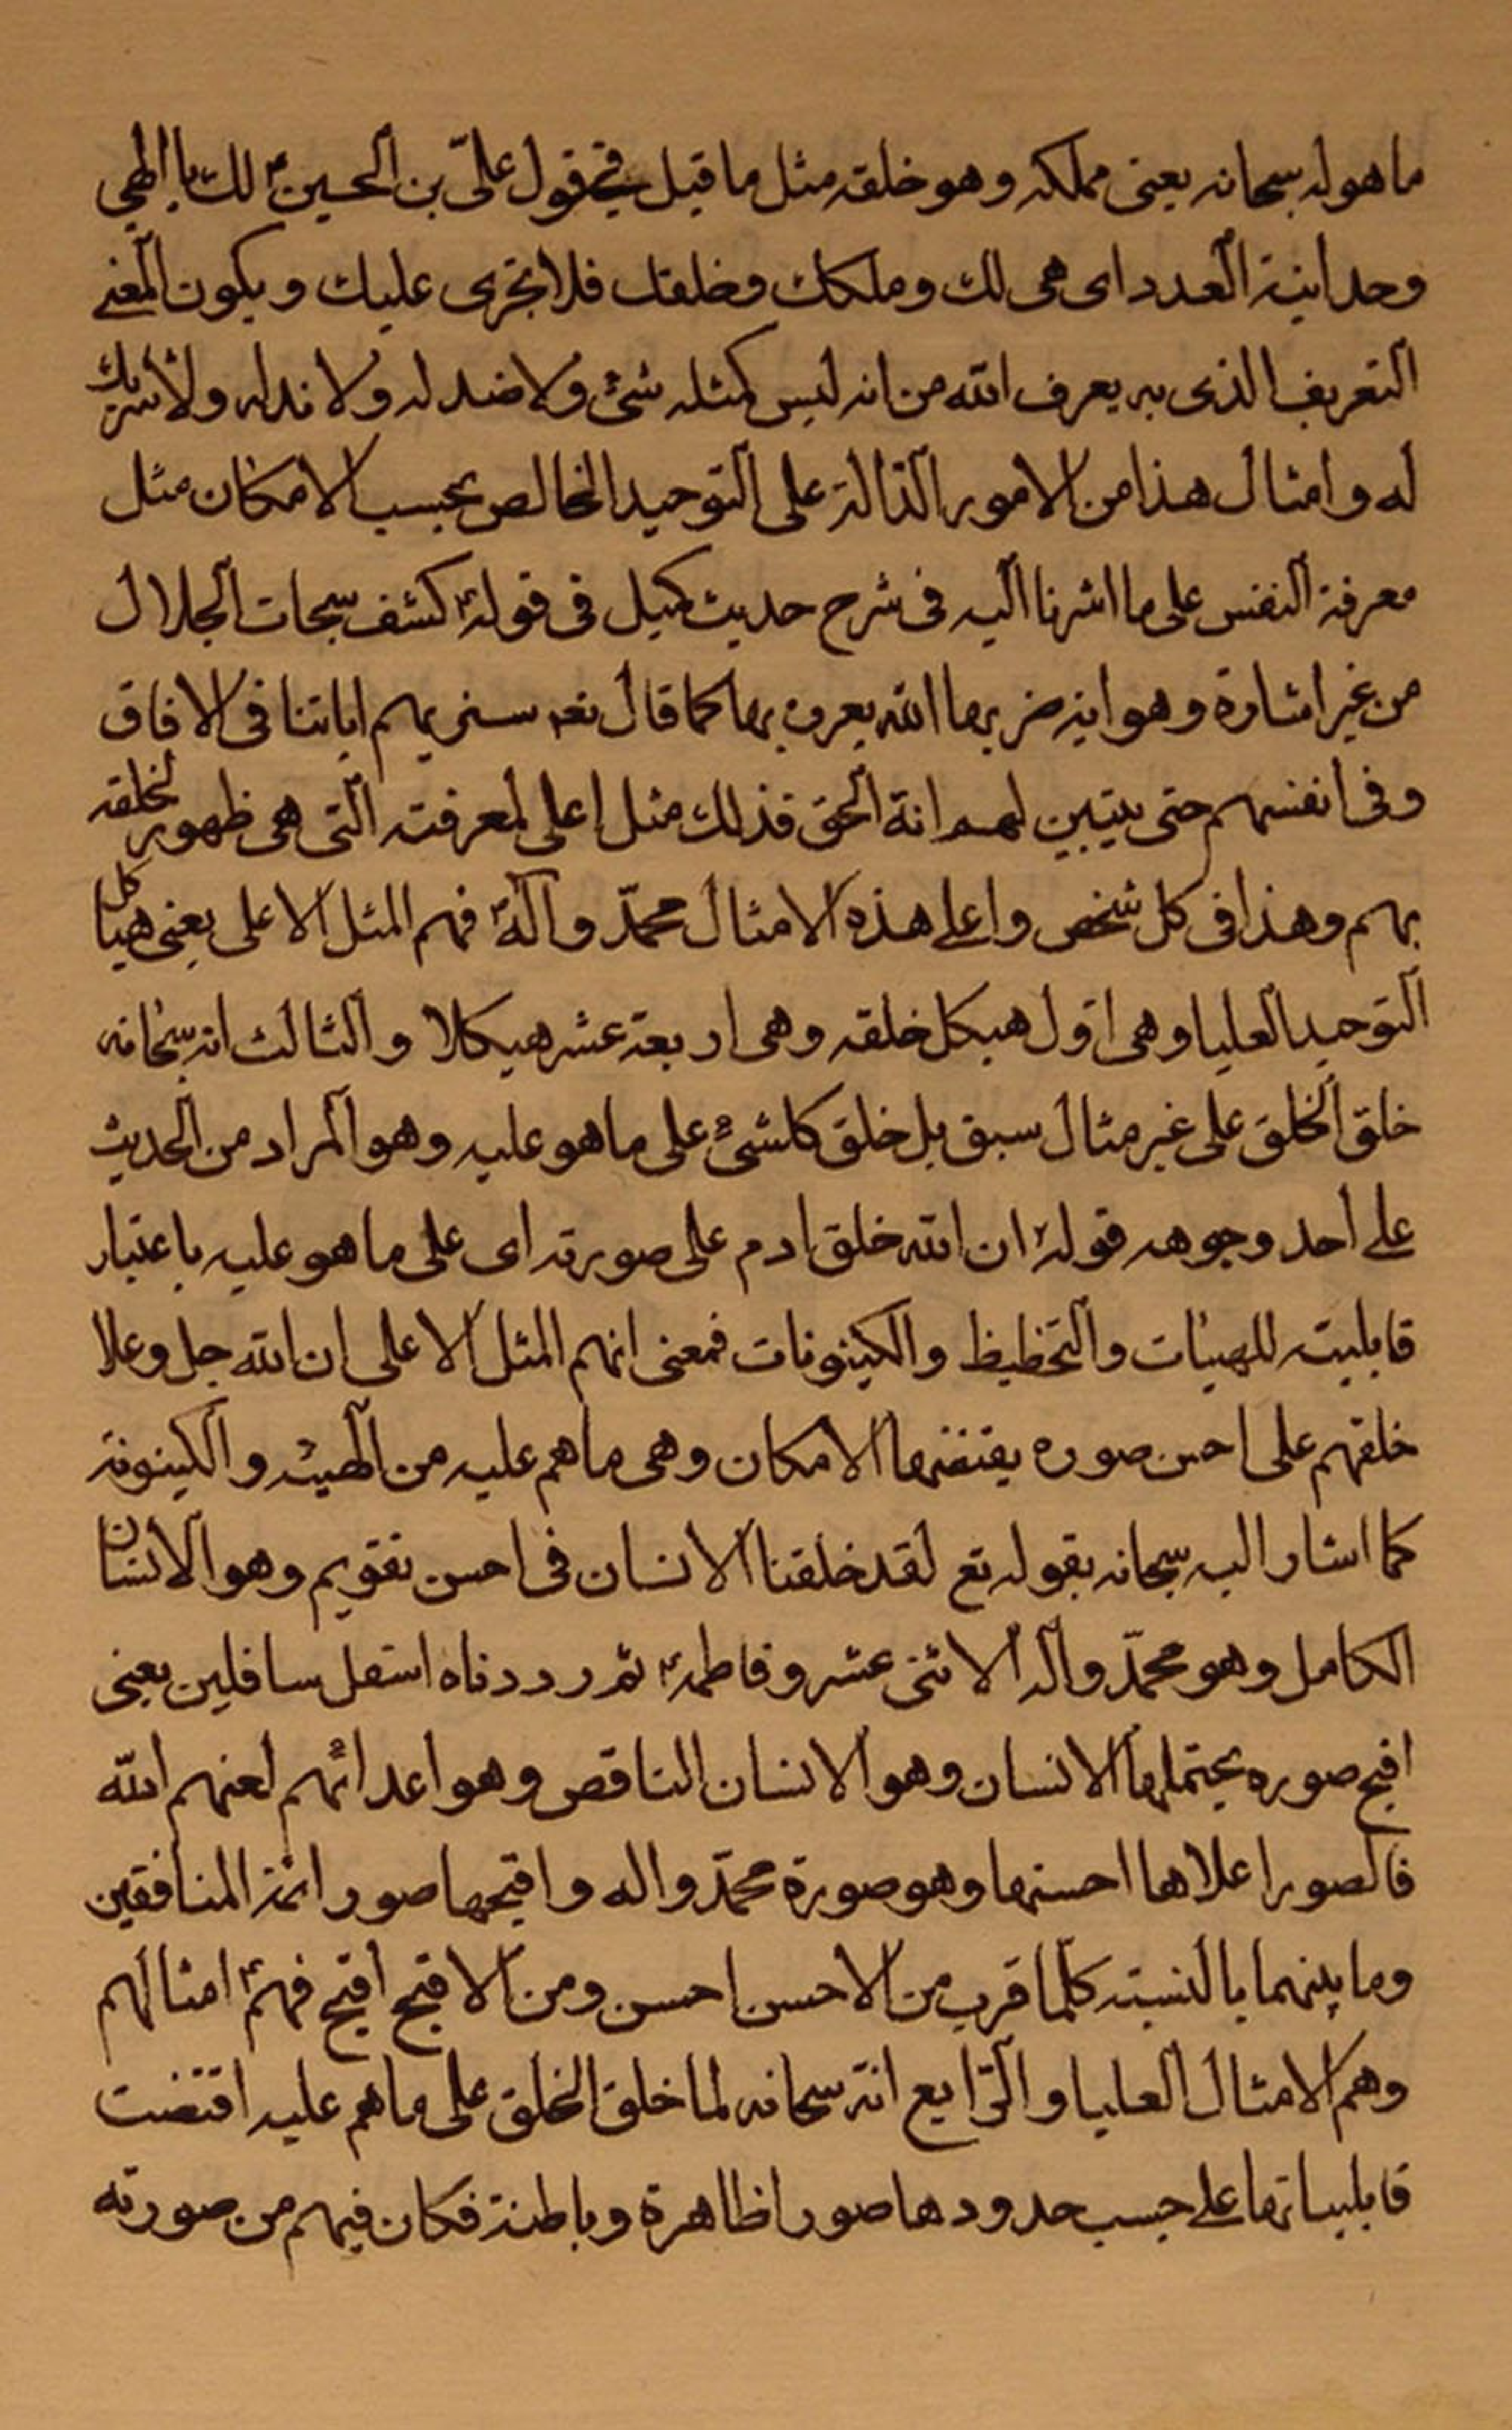 ما هو له سبحانه يعنى مملكه و هو خلقه مثل ما قيل فى قول علىّ بن الحسين ع لك يا الهي
وحدانية العدد اى هى لك و ملكك و خلقك فلا تجرى عليك و يكون المعنى
التعريف الذى به يعرف الله من انه ليس كمثله شئ و لا ضد له و لا ند له و لا شريك
له و امثال هذا من الامور الدّالة على التوحيد الخالص بحسب الامكان مثل
معرفة النفس على ما اشرنا اليه فى شرح حديث كميل فى قوله ع كشف سبحات الجلال
من غير اشارة و هو اية ضربها الله يعرف بها كما قال تعه سنريهم اياتنا فى الافاق
و فى انفسهم حتى يتبين لهم انه الحق فذلك مثل اعلى لمعرفته التى هى ظهوره لخلقه
بهم و هذا فى كل شخص و اعلى هذه الامثال محمّد و آله ع فهم المثل الاعلى يعنى هياكل
التوحيد العليا و هى اوّل هيكل خلقه و هى اربعة عشر هيكلا و الثالث انه سبحانه
خلق الخلق على غير مثال سبق بل خلق كلشئ على ما هو عليه و هو المراد من الحديث
على احد وجوهه قوله ع ان الله خلق ادم على صورته اى على ما هو عليه باعتبار
قابليته للهيئات و التخطيط و الكينونات فمعنى انهم المثل الاعلى ان الله جل و علا
خلقهم على احسن صوره يقتضيها الامكان و هى ما هم عليه من الهيئة و الكينونة
كما اشار اليه سبحانه بقوله تع لقد خلقنا الانسان فى احسن تقويم و هو الانسان
الكامل و هو محمّد و آله الاثنى عشر و فاطمه ع ثم رددناه اسفل سافلين يعنى
اقبح صوره يحتملها الانسان و هو الانسان الناقص و هو اعدائهم لعنهم الله
فالصور اعلاها احسنها و هو صورة محمّد و اله و اقبحها صور ائمة المنافقين
و ما بينهما بالنسبته كلّما قرب من الاحسن احسن و من الاقبح اقبح فهم ع امثالهم
و هم الامثال العليا و الرّابع انه سبحانه لما خلق الخلق على ما هم عليه اقتضت
قابلياتها على حسب حدودها صورا ظاهرة و باطنة فكان فيهم من صورته